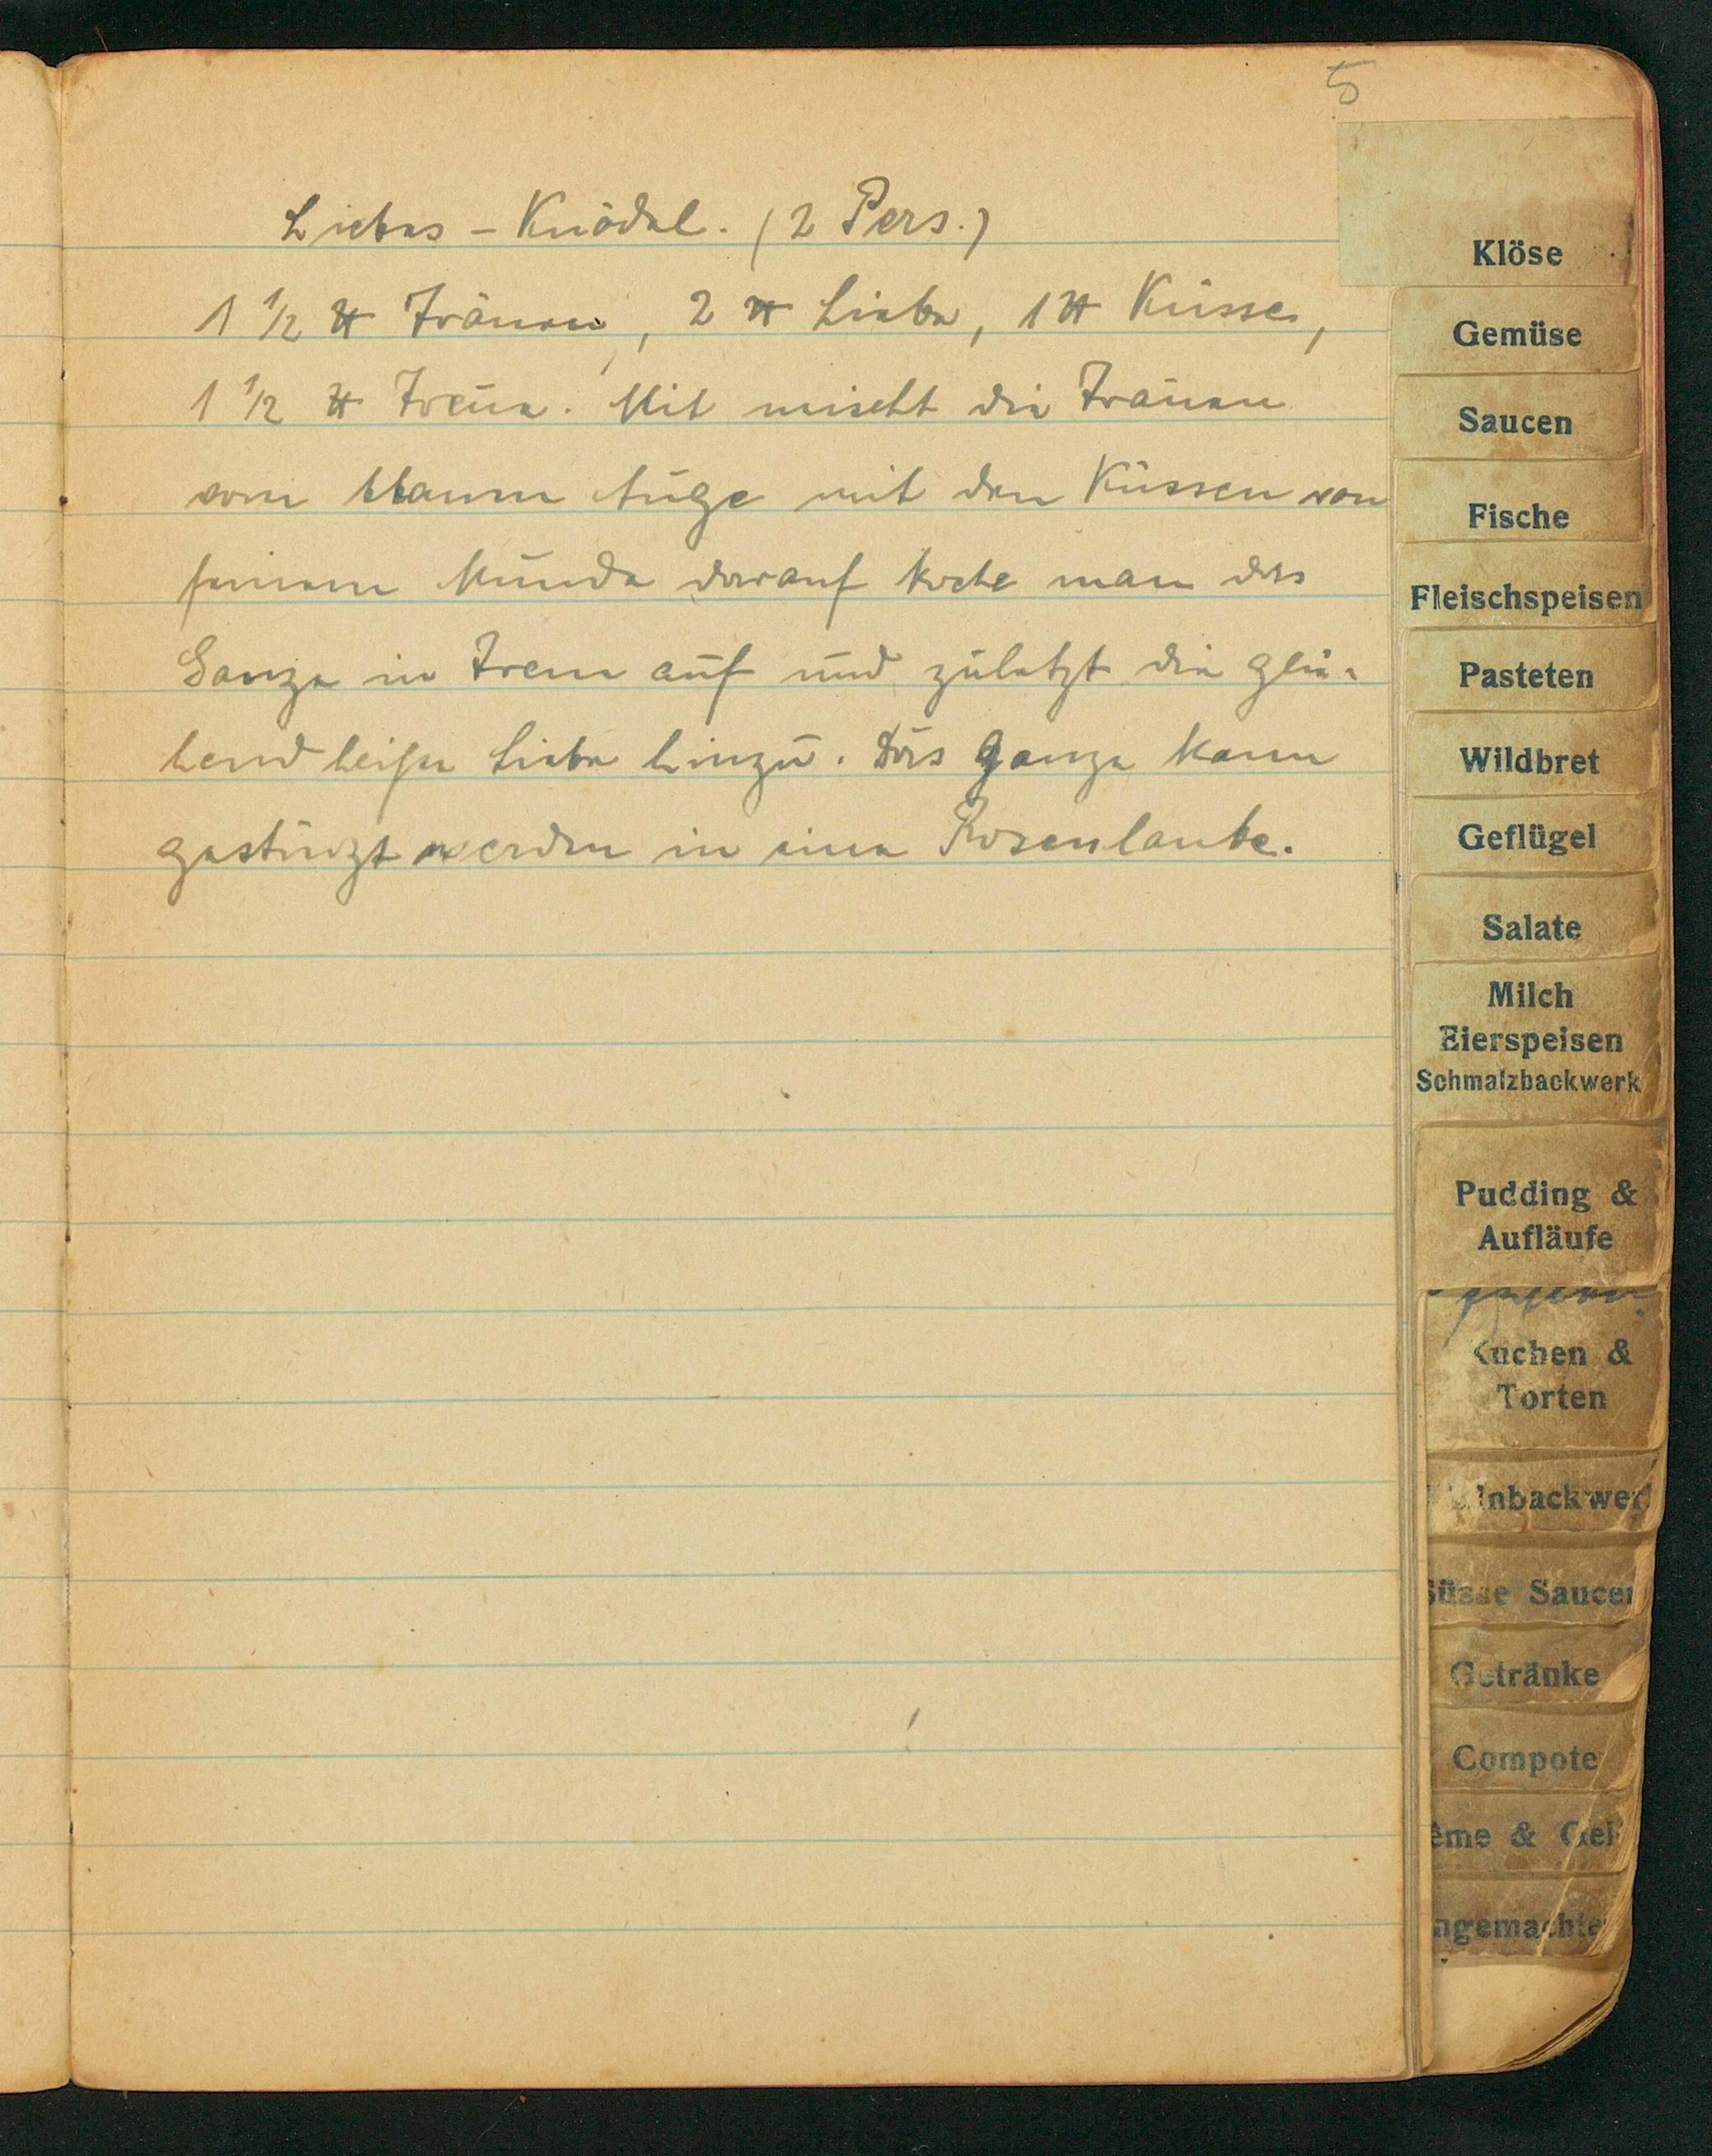 5
Liebes - Knödel. (2 Pers.)
1 1/2 ℔ Tränen, 2 ℔ Liebe, 1 ℔ Küsse,
1 1/2 ℔ Treue. Mit mischt die Tränen
vom blauen Auge mit den Küssen von
seinem Munde darauf koche man das
Ganze in Treue auf und zuletzt die glü-
hend heiße Liebe hinzu. Das ganze kann
gestürzt werden in eine Rosenlaube.
Klöse
Gemüse
Saucen
Fische
Fleischspeisen
Pasteten
Wildbret
Geflügel
Salate
Milch
Eierspeisen
Schmalzbackwerk
Pudding &
Aufläufe
Kuchen &
Torten
inbackwer
Süsse Saucen
Getränke
Compote
ême & Gel
ngemachte